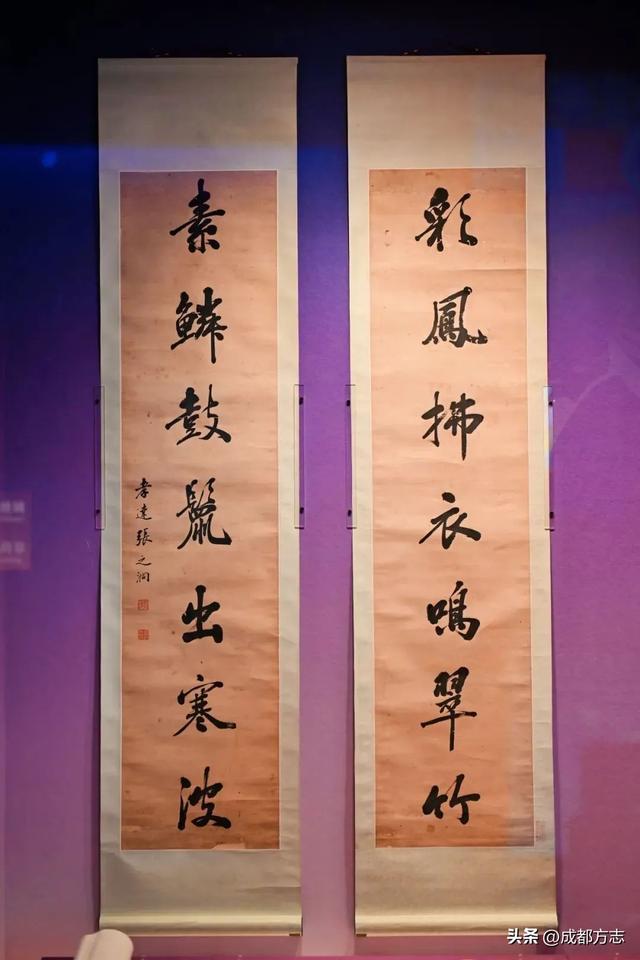 彩鳳拂衣鳴翠竹
素鱗鼓鬣出寒波
孝達張之洞
头条 @成都方志